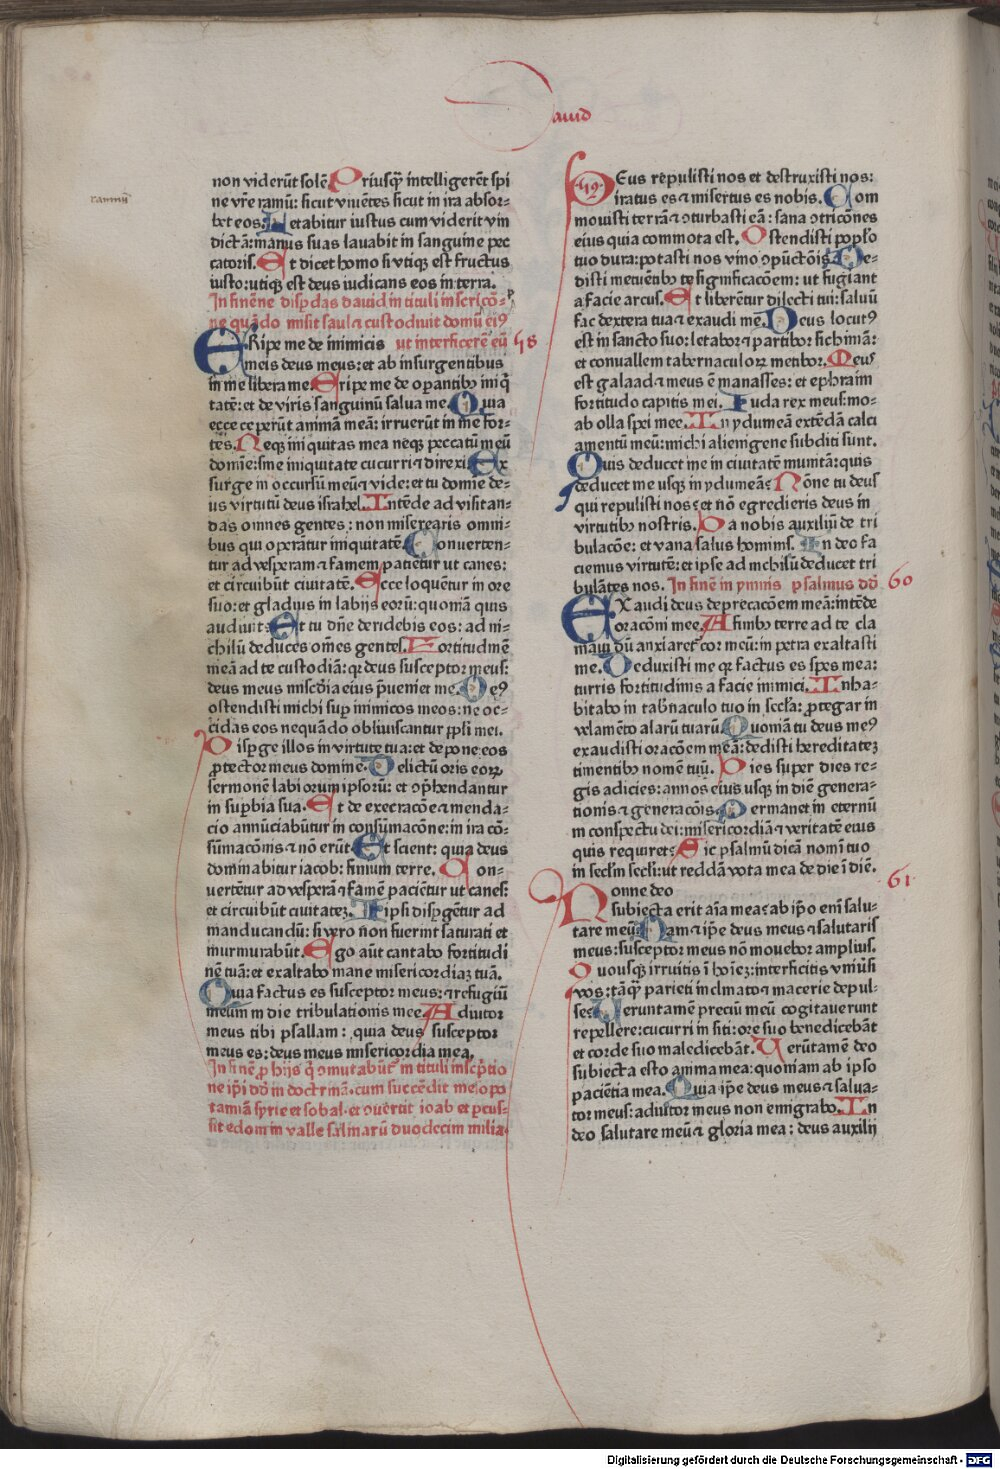 Dauid
non viderūt solē. Priusq̄ intelligerēt spi
ramnū
ne vr̄e ramū: sicut viuētes sicut in ira absor-
bet eos. Letabitur iustus cum viderit vin
dictā: manus suas lauabit in sanguine pec
catoris. Et dicet homo si vtiqꝫ est fructus
iusto: utiqꝫ est deus iudicans eos in terra.
In finē ne disꝑdas dauid in tituli inscricō-
ne quādo misit saul ⁊ custodiuit domū eiꝰ
ERipe me de inimicis ut interficerēt eū 58
meis deus meus: et ab insurgentibus
in me libera me. Eripe me de oꝑantibꝫ iniq̄
tatē: et de viris sanguinū salua me. Quia
ecce ceperūt animā meā: irruerūt in me for-
tes. Neqꝫ iniquitas mea neqꝫ peccatū meū
domīe: sine iniquitate cucurri ⁊ direxi. Ex
surge in occursū meū ⁊ vide: et tu domīe de-
us virtutū deus israhel. Intēde ad visitan-
das omnes gentes: non miserearis omni-
bus qui operātur iniquitatē. Conuerten-
tur ad vesperam ⁊ famem patietur ut canes:
et circuibūt ciuitatē. Ecce loquētur in ore
suo: et gladius in labijs eorū: quoniā quis
audiuit. Et tu dn̄e deridebis eos: ad ni-
chilū deduces om̄es gentes. Fortitudinē
meā ad te custodiā: qꝛ deus susceptor meus:
deus meus mīscd̄ia eius p̄ueniet me. Deꝰ
ostendisti michi suꝑ inimicos meos: ne oc-
cidas eos nequādo obliuiscantur ppl̄i mei.
Disꝑge illos in virtute tua: et depone eos
ꝓtector meus dominē. Delictū oris eoꝝ
sermonē labiorum ipsorū: et ꝯp̄hendantur
in suꝑbia sua. Et de execracōe ⁊ menda-
cio annūciabūtur in consūmacōne: in ira cō-
sūmacōnis ⁊ nō erūt. Et scient: quia deus
dominabitur iacob: finium terre. Con-
uertētur ad vesperā ⁊ famē paciētur ut canes:
et circuibūt ciuitateꝫ. Ipsi disꝑgētur ad
manducandū: si vero non fuerint saturati et
murmurabūt. Ego aūt cantabo fortitudi
nē tuā: et exaltabo mane misericordiaꝫ tuā.
Quia factus es susceptor meus: ⁊ refugiū
meum in die tribulationis mee. Adiutor
meus tibi psallam: quia deus susceptor
meus es: deus meus misericordia mea.
In finē ꝓ hijs q̄ ꝯmutabūt in tituli inscp̄tio
ne ip̄i dd̄ in doctrinā. cum succēdit mesopo
tamiā syrie et sobal. et ꝯuertit ioab et ꝑcus-
sit edom in valle salinarū duodecim milia.
59.
DEus repulisti nos et destruxisti nos:
iratus es ⁊ misertus es nobis. Com
mouisti terrā ⁊ ꝯturbasti eā: sana ꝯtricōnes
eius quia commota est. Ostendisti popl̄o
tuo dura: potasti nos vino ꝯpūctōis. De-
disti metuētibꝫ te significacōem: ut fugiant
a facie arcus. Et liberētur dilecti tui: saluū
fac dextera tua ⁊ exaudi me. Deus locutꝰ
est in sancto suo: letabor ⁊ partibor sichimā:
et conuallem tabernaculoꝝ metibor. Meus
est galaad ⁊ meus ē manasses: et ephraim
fortitudo capitis mei. Iuda rex meus: mo-
ab olla spei mee. In ydumeā extēdā calci
amentū meū: michi alienigene subditi sunt.
Quis deducet me in ciuitatē munitā: quis
deducet me usqꝫ in ydumeā? Nōne tu deus
qui repulisti nos: et nō egredieris deus in
virtutibꝫ nostris. Da nobis auxiliū de tri
bulacōe: et vana salus hominis. In deo fa
ciemus virtutē: et ipse ad nichilū deducet tri
bulātes nos. In finē in ymnis psalmus dd̄ 60
EXaudi deus deprecacōem meā: intēde
oracōni mee. A finibꝫ terre ad te cla
maui dū anxiaret᷑ cor meū: in petra exaltasti
me. Deduxisti me qꝛ factus es spes mea:
turris fortitudinis a facie inimici. Inha-
bitabo in tab̄naculo tuo in secl̄a: ꝓtegar in
velamēto alarū tuarū. Quoniā tu deus meꝰ
exaudisti oracōem meā: dedisti hereditateꝫ
timentibꝫ nomē tuū. Dies super dies re-
gis adicies: annos eius usqꝫ in diē genera-
tionis ⁊ generacōis. Permanet in eternū
in conspectu dei: misericordiā ⁊ veritatē eius
quis requiret? Sic psalmū dicā nomī tuo
in secl̄m secl̄i: ut reddā vota mea de die ī diē.
61
Nonne deo
subiecta erit aīa mea: ab ip̄o enī salu-
tare meū. Nam ⁊ ip̄e deus meus ⁊ salutaris
meus: susceptor meus nō mouebor amplius.
Quousqꝫ irruitis ī hoīeꝫ: interficitis vniūsi
vos: tāq̄ parieti inclinato ⁊ macerie depul-
se. Veruntamē preciū meū cogitauerunt
repellere: cucurri in siti: ore suo benedicebāt
et corde suo maledicebāt. Verūtamē deo
subiecta esto anima mea: quoniam ab ipso
paciētia mea. Quia ip̄e deus meus ⁊ salua-
tor meus: adiutor meus non emigrabo. In
deo salutare meū ⁊ gloria mea: deus auxilij
Digitalisierung gefördert durch die Deutsche Forschungsgemeinschaft - DFG